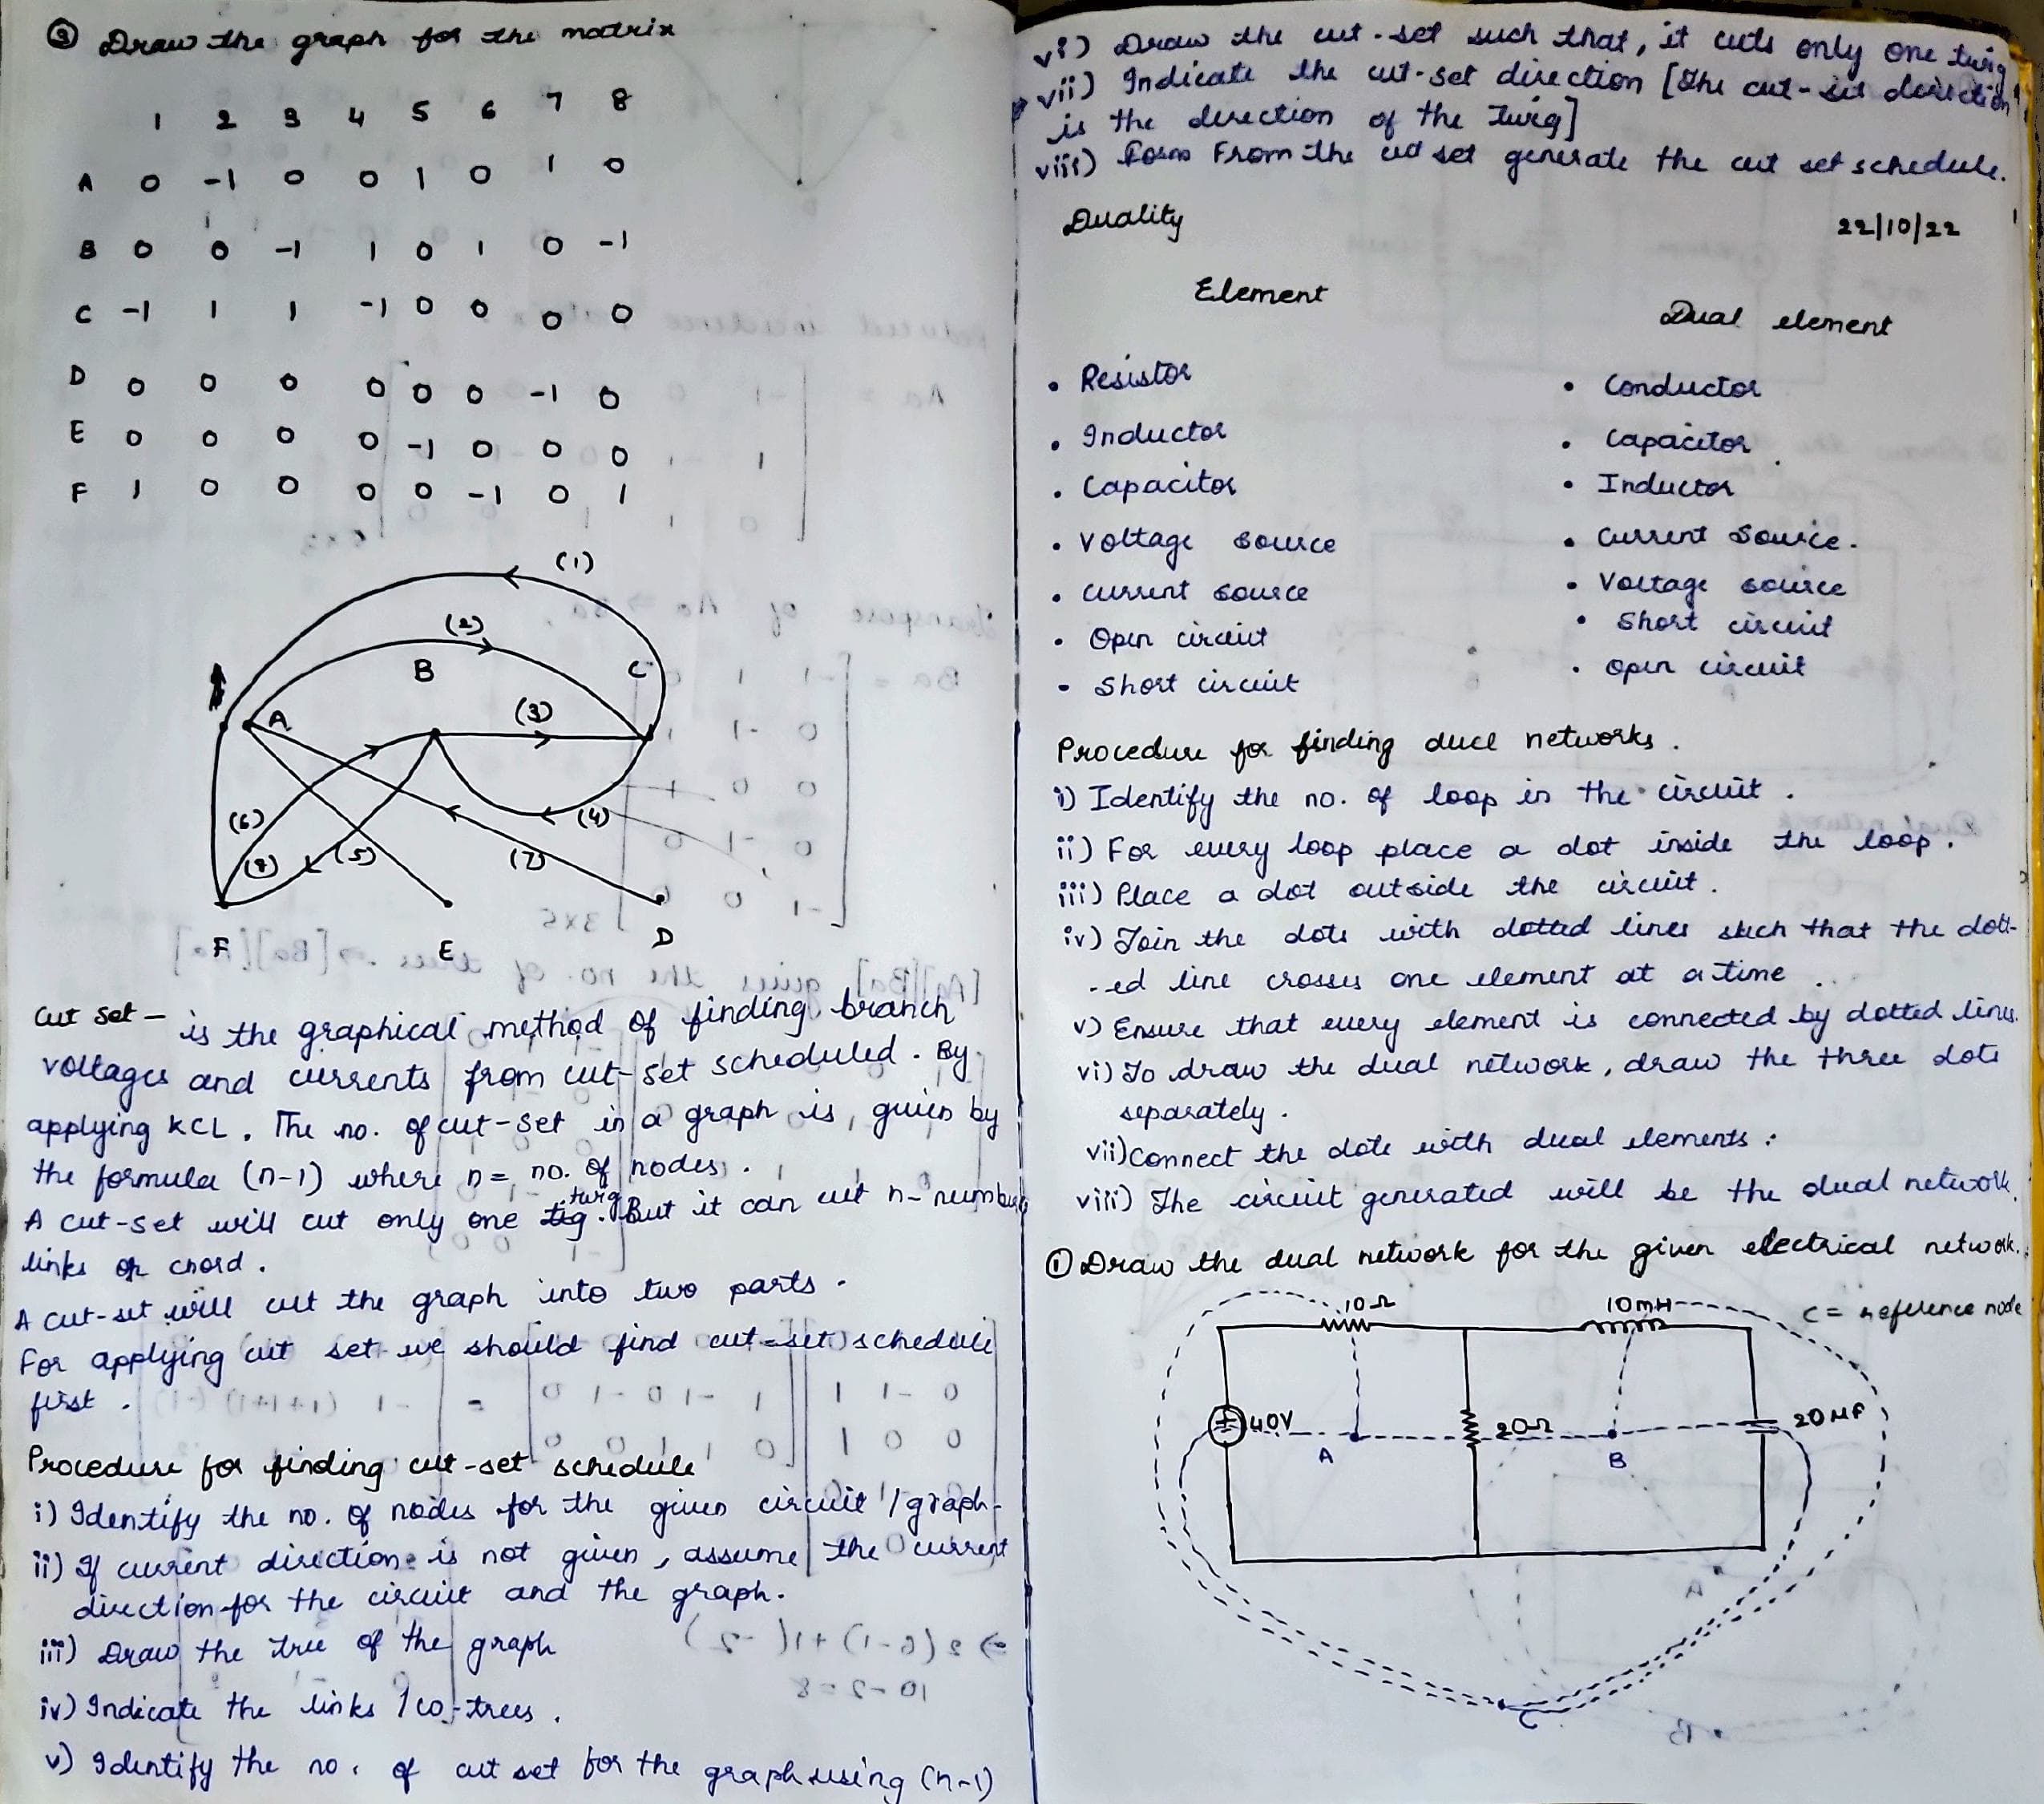 ③ Draw the graph for the matrix
1 2 3 4 5 6 7 8
A 0 -1 0 0 1 0 1 0
B 0 0 -1 1 0 1 0 -1
C -1 1 1 -1 0 0 0 0
D 0 0 0 0 0 0 -1 0
E 0 0 0 0 -1 0 0 0
F 1 0 0 0 0 -1 0 1
(1)
(2)
B
C
A
(3)
(6)
(4)
(8)
(5)
(7)
F E D
Cut set - is the graphical method of finding branch
voltages and currents from cut-set scheduled. By
applying KCL. The no. of cut-set in a graph is, given by
the formula (n-1) where n = no. of nodes.
A cut-set will cut only one twig. But it can cut n- number
links or chord.
A cut-set will cut the graph into two parts.
For applying cut set we should find cut-set schedule
first.
Procedure for finding cut-set schedule
i) Identify the no. of nodes for the given circuit / graph-
ii) If current direction is not given, assume the current
direction for the circuit and the graph.
iii) Draw the tree of the graph
iv) Indicate the links / co-trees.
v) Identify the no. of cut set for the graph using (n-1)
vi) Draw the cut-set such that, it cuts only one twig
vii) Indicate the cut-set direction [The cut-set direction
is the direction of the Twig]
viii) From the cut set generate the cut set schedule.
Duality 22/10/22
Element Dual element
• Resistor • Conductor
• Inductor • Capacitor
• Capacitor • Inductor
• Voltage source • Current Source.
• Current source • Voltage source
• Open circuit • Short circuit
• Short circuit • Open circuit
Procedure for finding ducl networks.
i) Identify the no. of loop in the circuit.
ii) For every loop place a dot inside the loop.
iii) Place a dot outside the circuit.
iv) Join the dots with dotted lines such that the dott-
-ed line crosses one element at a time
v) Ensure that every element is connected by dotted lines.
vi) To draw the dual network, draw the three dots
separately.
vii) Connect the dots with dual elements.
viii) The circuit generated will be the dual network.
① Draw the dual network for the given electrical network.
C = reference node
10Ω
10mH
40V
A
20Ω
B
20μF
C